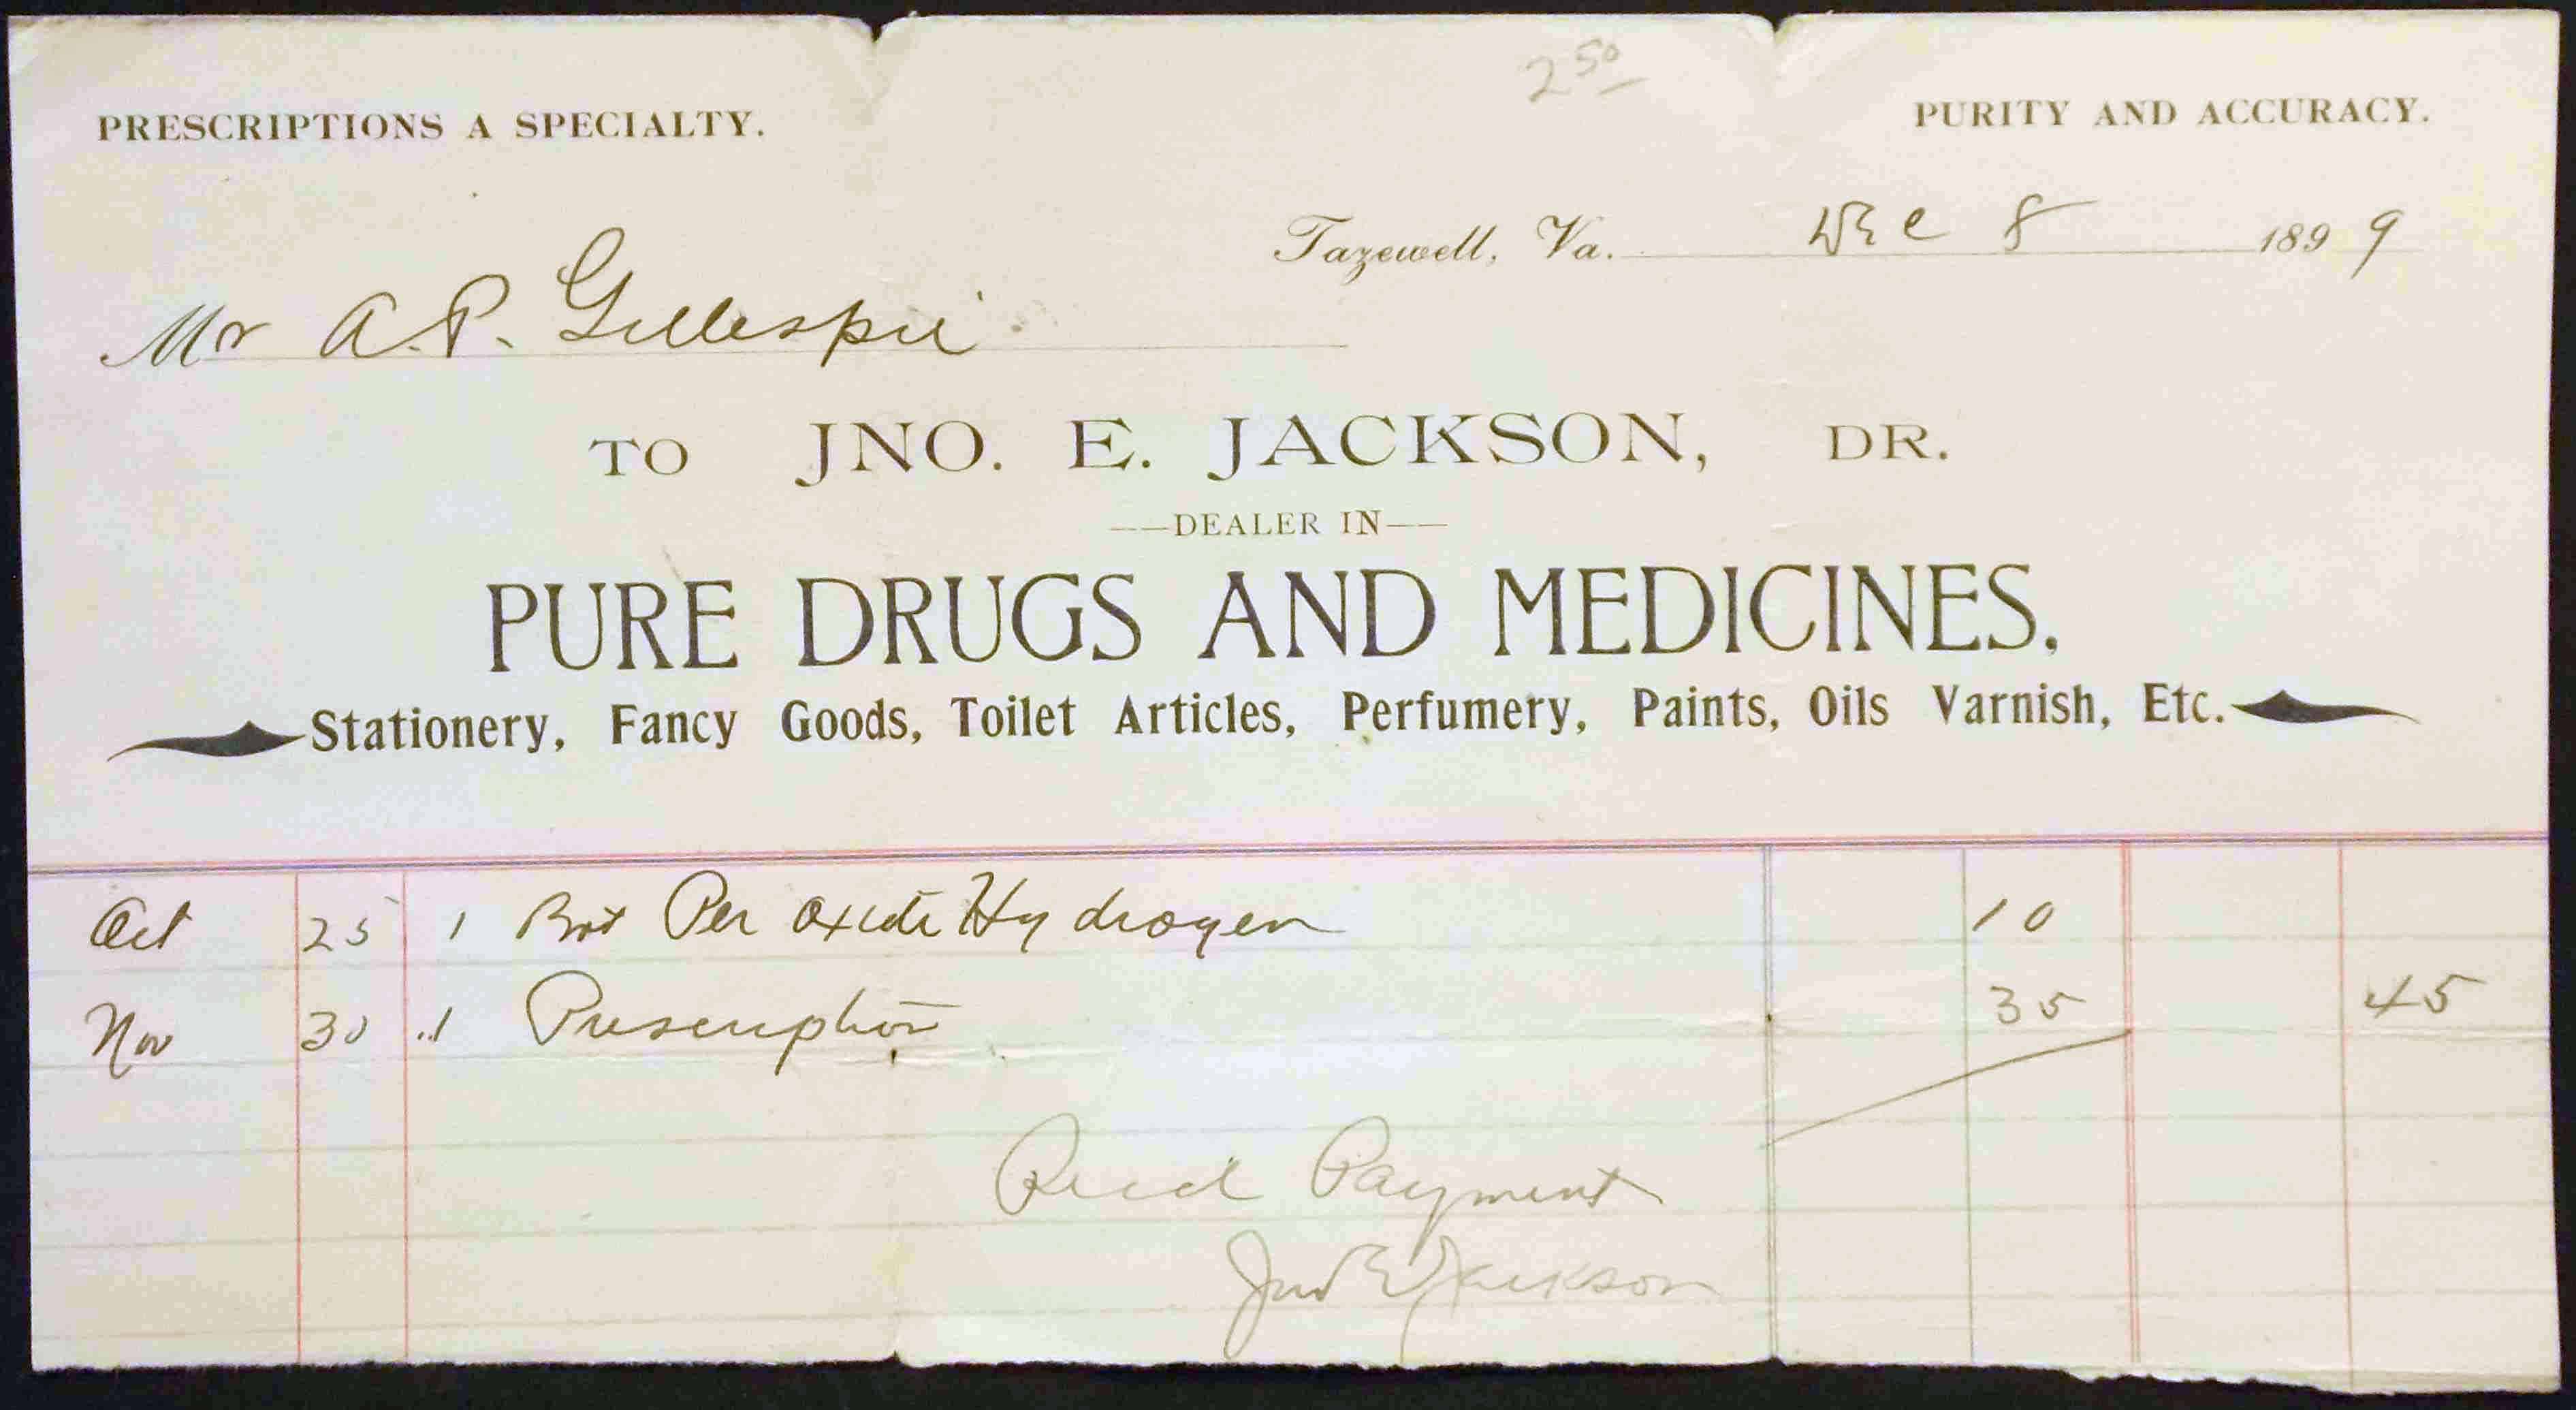 2 50
PRESCRIPTIONS A SPECIALTY. PURITY AND ACCURACY.
Tazewell, Va. Dec 8 1899
Mr A.P. Gillespie
TO JNO. E. JACKSON, DR.
—DEALER IN—
PURE DRUGS AND MEDICINES.
Stationery, Fancy Goods, Toilet Articles, Perfumery, Paints, Oils Varnish, Etc.
Oct 25 1 Bot Per oxide Hydrogen 10
Nov 30 1 Prescription 35 45
Recd Payment
Jno E Jackson